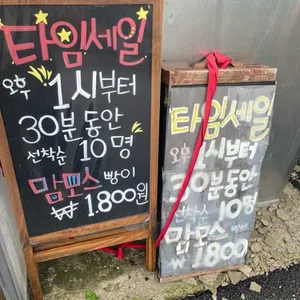 타임세일
오후 1시부터
30분동안
선착순 10명
맘모스빵이
₩1.800원
타임세일
오후 1시부터
30분동안
선착순 10명
맘모스빵이
₩1.800